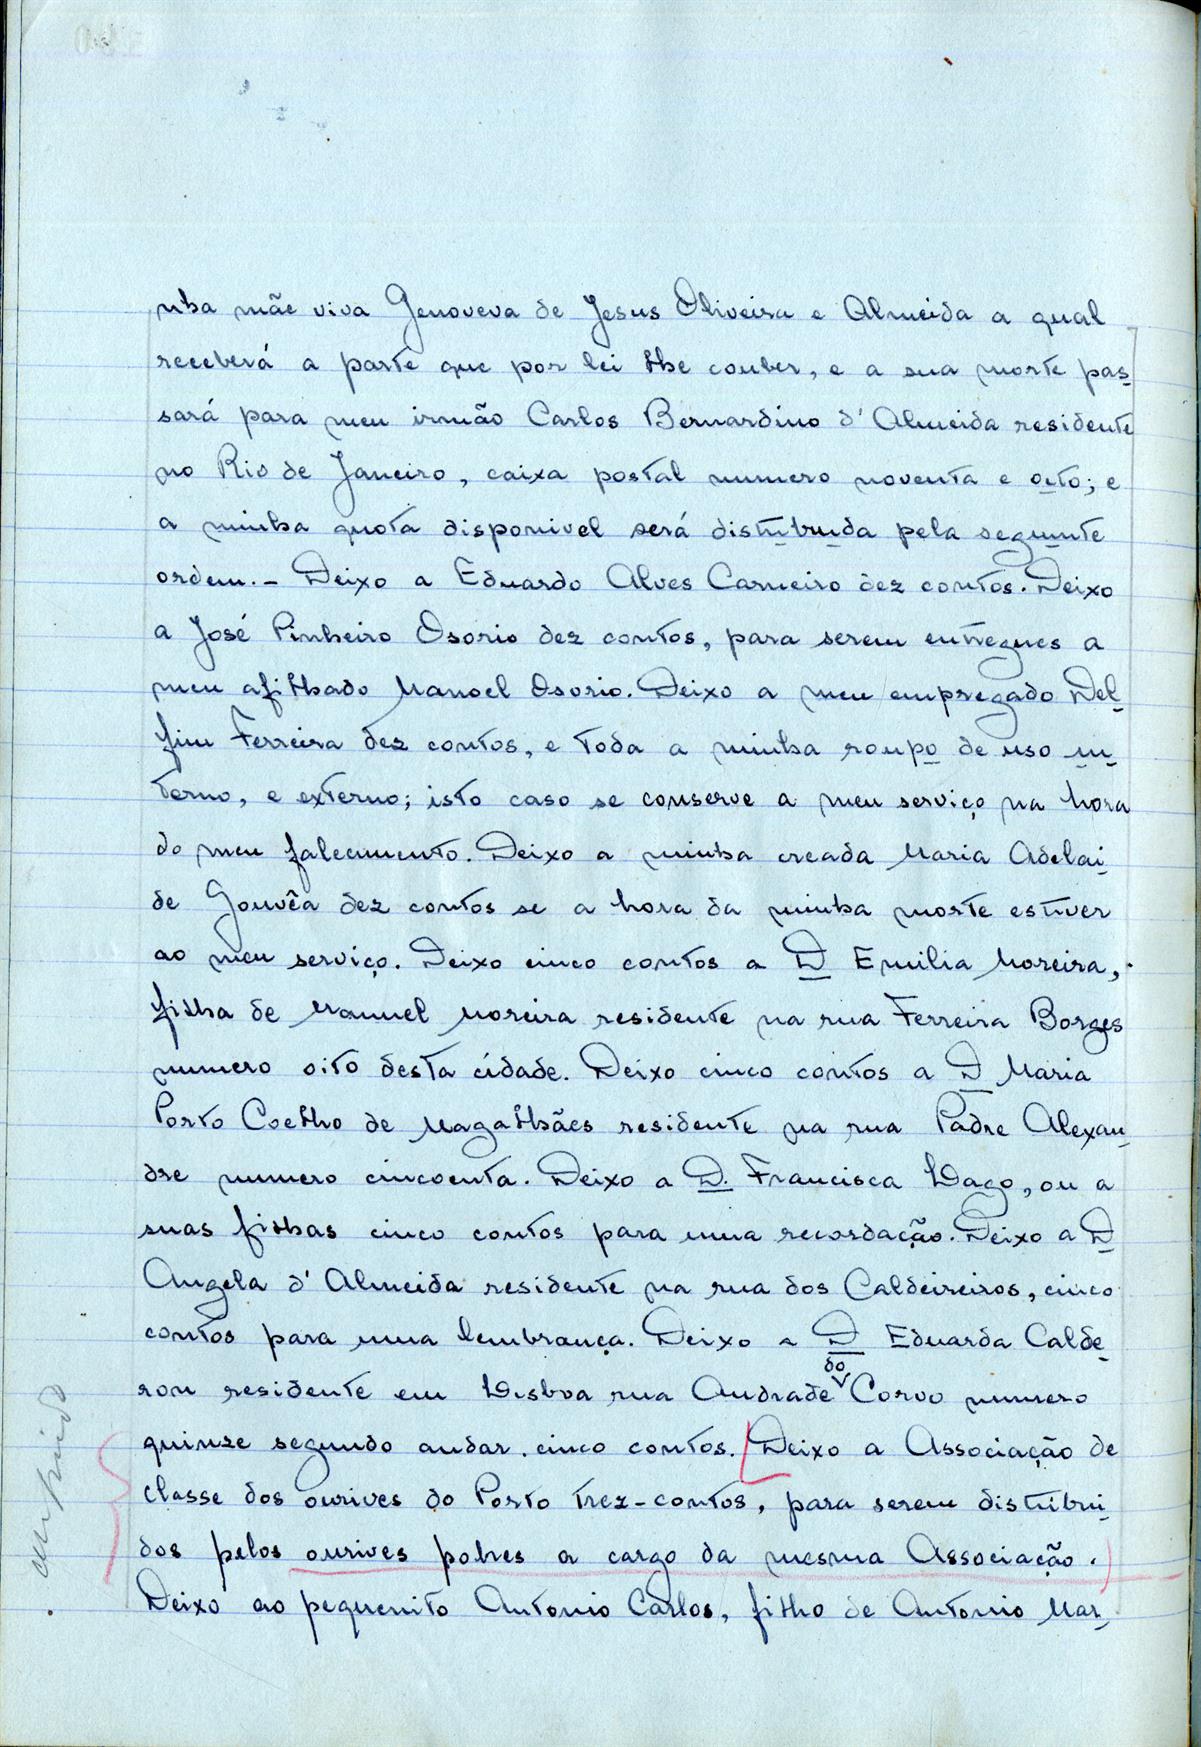 nha mãe viva Genoveva de Jesus Oliveira e Almeida a qual
receberá a parte que por lei lhe couber, e a sua morte pas-
sará para meu irmão Carlos Bernardino d'Almeida residente
no Rio de Janeiro, caixa postal numero noventa e oito; e
a minha quota disponivel será distribuida pela seguinte
ordem. - Deixo a Eduardo Alves Carneiro dez contos. Deixo
a José Pinheiro Osorio dez contos, para serem entregues a
meu afilhado Manoel Osorio. Deixo a meu empregado Del-
fim Ferreira dez contos, e toda a minha roupa de uso in-
terno, e externo; isto caso se conserve a meu serviço na hora
do meu falecimento. Deixo a minha creada Maria Adelai-
de Gouvêa dez contos se a hora da minha morte estiver
ao meu serviço. Deixo cinco contos a D Emilia Moreira,
filha de Manuel Moreira residente na rua Ferreira Borges
numero oito desta cidade. Deixo cinco contos a D Maria
Porto Coelho de Magalhães residente na rua Padre Alexan-
dre numero cincoenta. Deixo a D. Francisca Lago, ou a
suas filhas cinco contos para uma recordação. Deixo a D
Angela d'Almeida residente na rua dos Caldeireiros, cinco
contos para uma lembrança. Deixo a D Eduarda Calde-
do
ron residente em Lisboa rua Andrade Corvo numero
quinze segundo andar. cinco contos. Deixo a Associação de
classe dos ourives do Porto trez-contos, para serem distribui-
dos pelos ourives pobres a cargo da mesma Associação.
Deixo ao pequenito Antonio Carlos, filho de Antonio Mar-